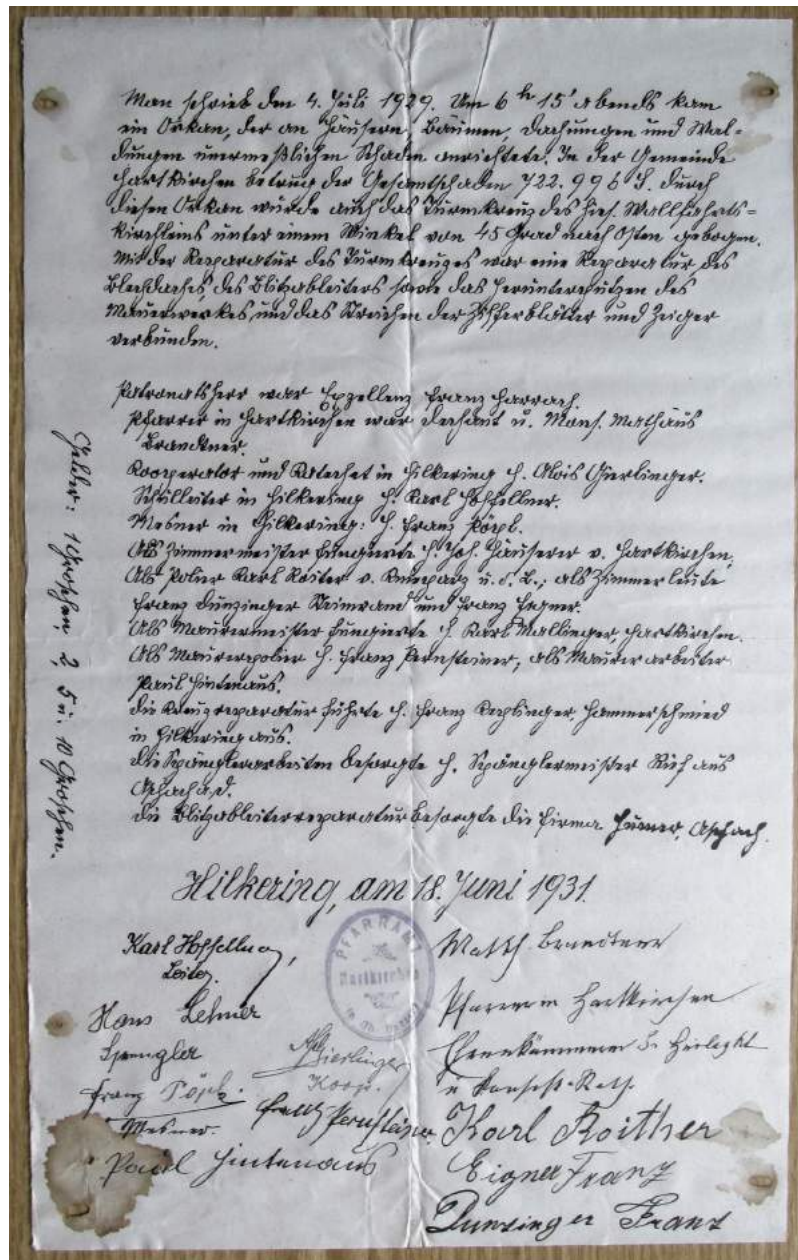 Man schrieb den 4. Juli 1929. Um 6 h 15' abends kam
ein Orkan, der an Häusern, Bäumen, Dachungen und Wal-
dungen unermeßlichen Schaden anrichtete. In der Gemeinde
Hartkirchen betrug der Gesamtschaden 722.996 S. Durch
diesen Orkan wurde auch das Turmkreuz des hies. Wallfahrts-
kirchleins unter einem Winkel von 45 Grad nach Osten gebogen.
Mit der Reparatur des Turmkreuzes war eine Reparatur des
Blechdaches, des Blitzableiters sowie das Herunterputzen des
Mauerwerkes und das Streichen der Zifferblätter und Zeiger
verbunden.
Patronatsherr war Exzellenz Franz Harrach.
Pfarrer in Hartkirchen war Dechant u. Mons. Mathäus
Brandtner.
Kooperator und Katechet in Hilkering H. Alois Gierlinger.
Schulleiter in Hilkering H. Karl Hoffellner.
Mesner in Hilkering: H. Franz Pöpl.
Als Zimmermeister fungierte H. Joh. Häuserer v. Hartkirchen,
Als Polier Karl Roiter v. u. d. L.; als Zimmerleute
Franz Dunzinger Steinwand und Franz Eigner.
Als Maurermeister fungierte H. Karl Mallinger, Hartkirchen.
Als Maurerpolier H. Franz Pernsteiner, als Maurerarbeiter
Paul Hintenaus.
Die Kreuzreparatur führte H. Franz Replinger, Hammerschmied
in Hilkering aus.
Die Spänglerarbeiten besorgte H. Spänglermeister Ruf aus
Aschach a. d.
Die Blitzableiterreparatur besorgte die Firma Humer, Aschach.
Gelder: 1 Groschen, 2, 5 u. 10 Groschen.
Hilkering, am 18. Juni 1931.
PFARRAMT
Hartkirchen
Karl Hoffellner,
Leiter.
Matth. Brandtner
Hans Lehner
Spengler
Pfarrer in Hartkirchen
Gierlinger
Koop.
Ehrenkämmerer Sr. Heiligkt
u. Konsist. Rath.
Franz Pöpl.
Mesner.
Franz Pernsteiner.
Karl Roither
Paul Hintenaus
Eigner Franz
Dunzinger Franz